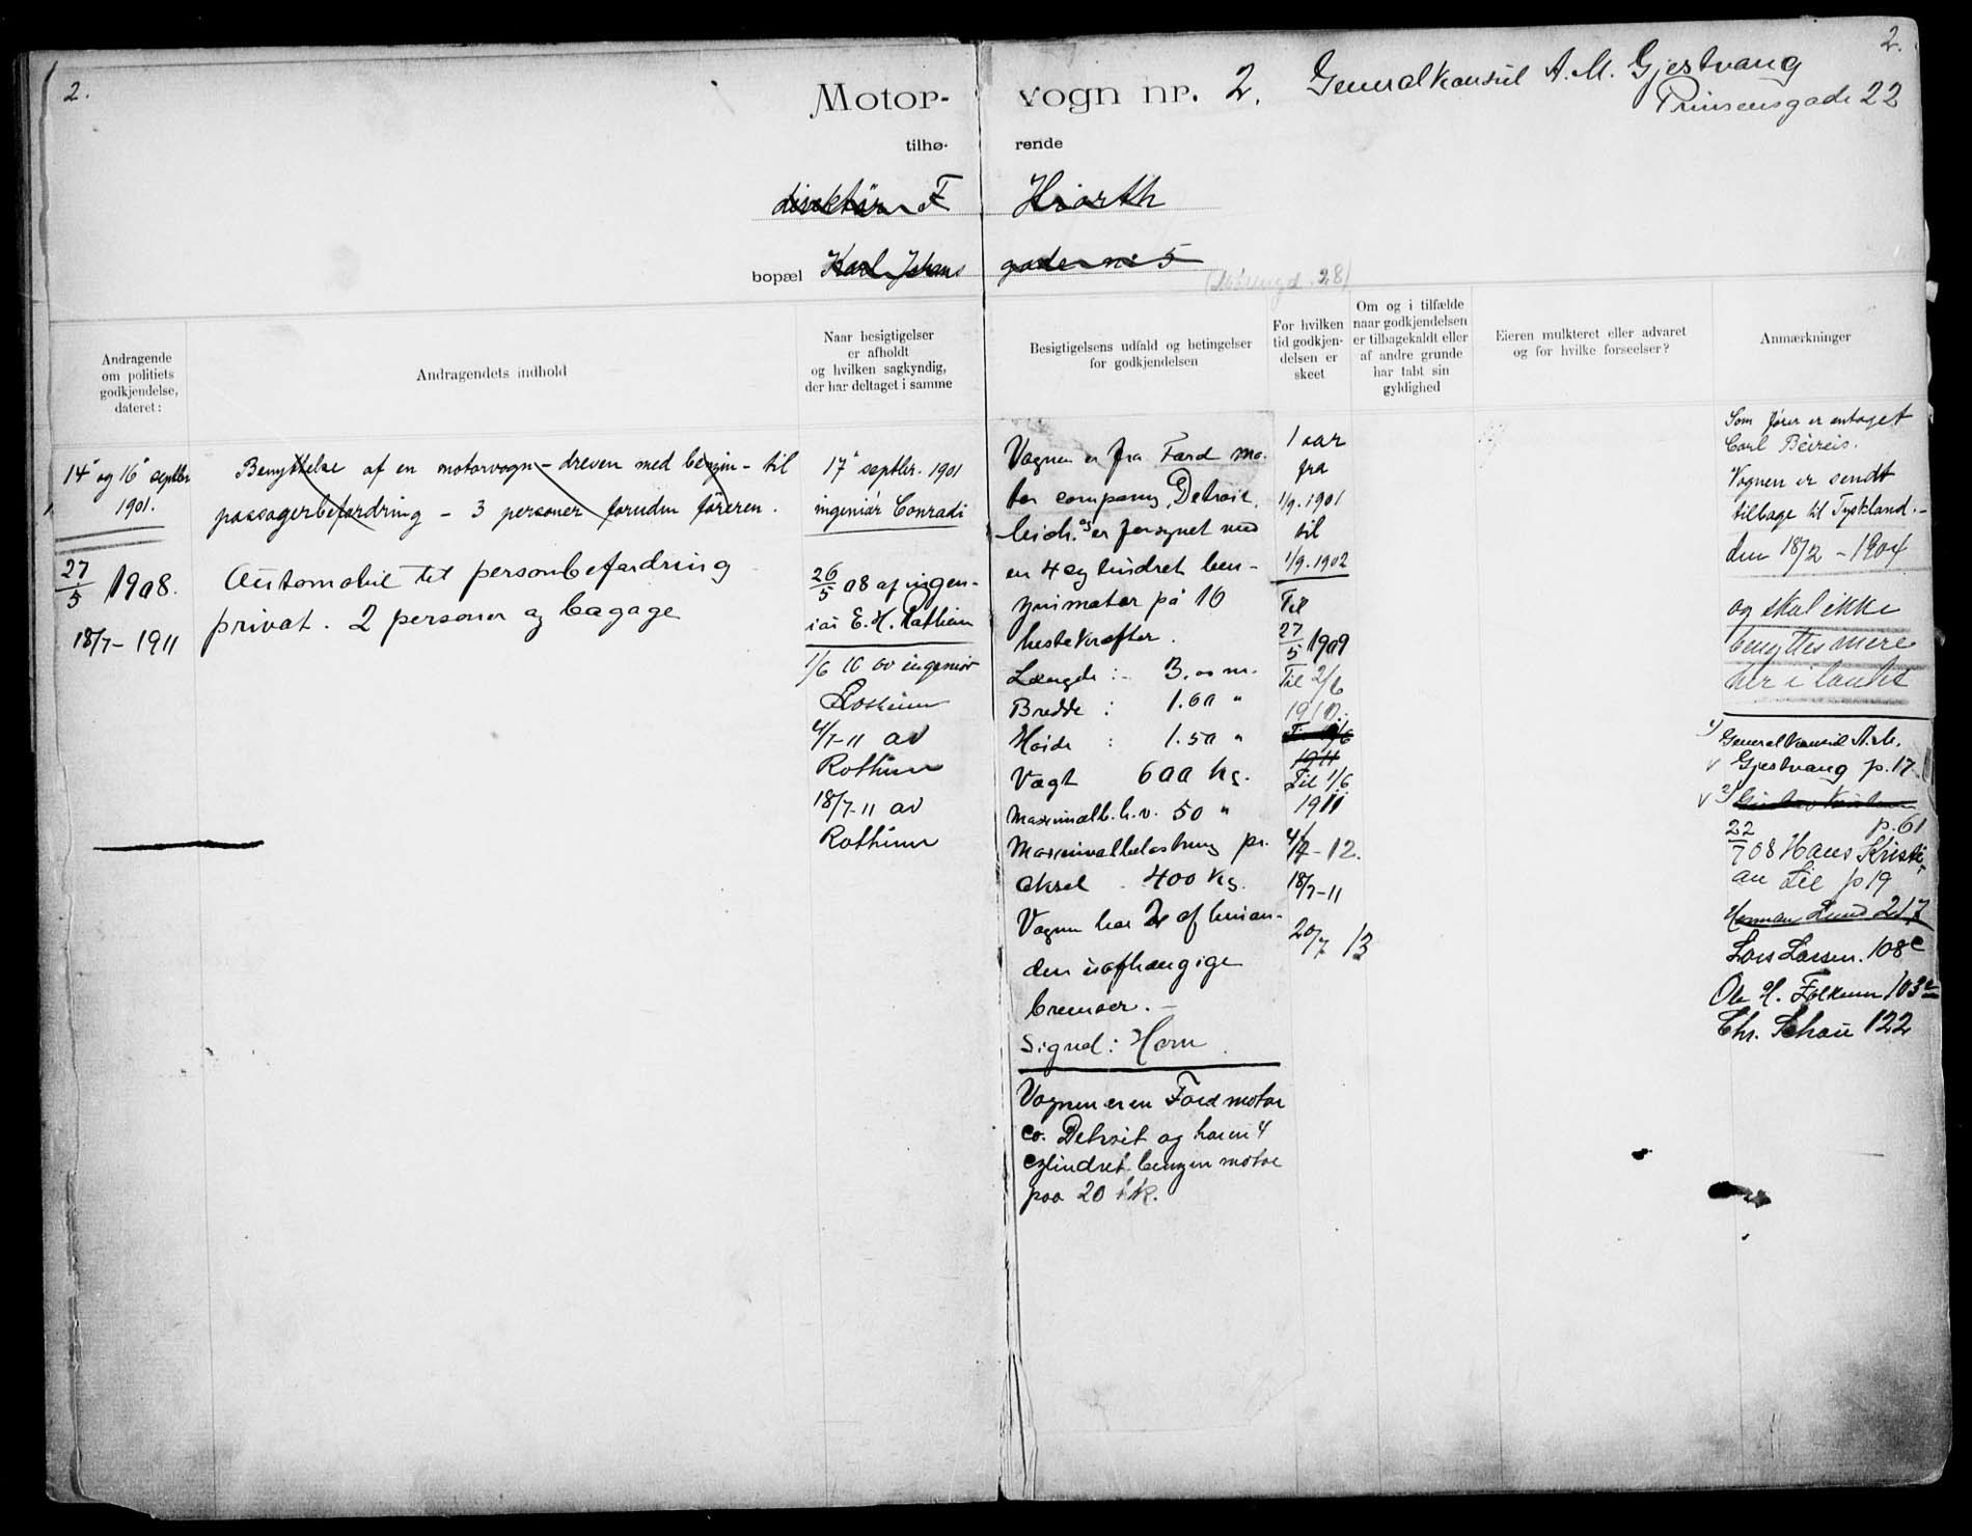 2.
2.
Motor-vogn nr. 2. Generalkonsul A. M. Gjestvang
Prinsensgade 22
tilhørende
direktör F Hiorth
bopæl Karl Johans gade nr 5
Andragende
om politiets
godkjendelse,
dateret:
Andragendets indhold
Naar besigtigelser
er afholdt
og hvilken sagkyndig,
der har deltaget i samme
Besigtigelsens udfald og betingelser
for godkjendelsen
For hvilken
tid godkjen-
delsen er
skeet
Om og i tilfælde
naar godkjendelsen
er tilbagekaldt eller
af andre grunde
har tabt sin
gyldighed
Eieren mulkteret eller advaret
og for hvilke forseelser?
Anmærkninger
14 og 16 septbr
1901.
27/5 1908.
18/7-1911
Benyttelse af en motorvogn - dreven med benzin - til
passagerbefordring - 3 personer foruden föreren.
Automobil til personbefordring
privat. 2 personer og bagage
17 septbr. 1901
ingeniör Conradi
26/5 08 af ingen-
iör E. H. Rotheim
1/6 10 av ingeniör
Rotheim
4/7-11 av
Rotheim
18/7-11 av
Rotheim
Vognen er fra Ford mo-
tor company, Detroit,
Mich. og er forsynet med
en 4 cylindret ben-
zinmotor på 16
hestekræfter.
Længde: 3.00 m.
Bredde: 1.60 "
Höide: 1.50 "
Vægt 600 kg.
Maximalb. h. v. 50 "
Maximalbelastning pr.
aksel 400 kg.
Vognen har 2 af hinan-
den uafhængige
bremser. -
Signal: Horn.
Vognen er en Ford motor
co. Detroit og har en 4
cylindret benzin motor
paa 20 hk.
1 aar
fra
1/9. 1901
til
1/9. 1902
Til
27/5 1909
Til 2/6
1910.
1911
Til 1/6
1911
4/7-12.
18/7-11
20/7 13
Som förer er antaget
Carl Beireis.
Vognen er sendt
tilbage til Tyskland. -
den 18/2 - 1904
og skal ikke
benyttes mere
her i landet
1) Generalkonsul A. M.
v Gjestvang p. 17
v 2)
p. 61
22/7 08 Hans Kristi-
an Lie p 19
Herman Lund 217
Lars Larsen. 108 c
Ole H. Folkum 103 e
Chr. Schou 122